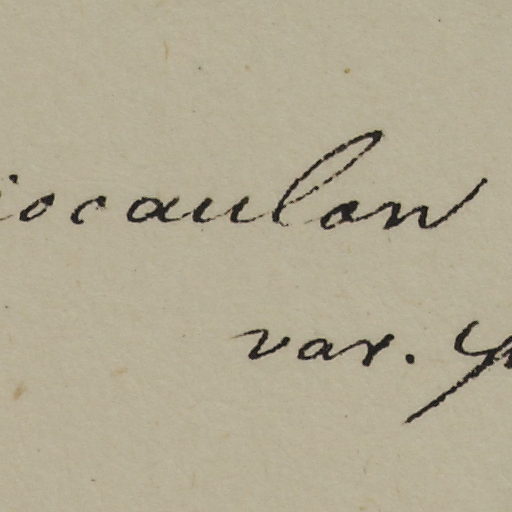 iocaulon
var.